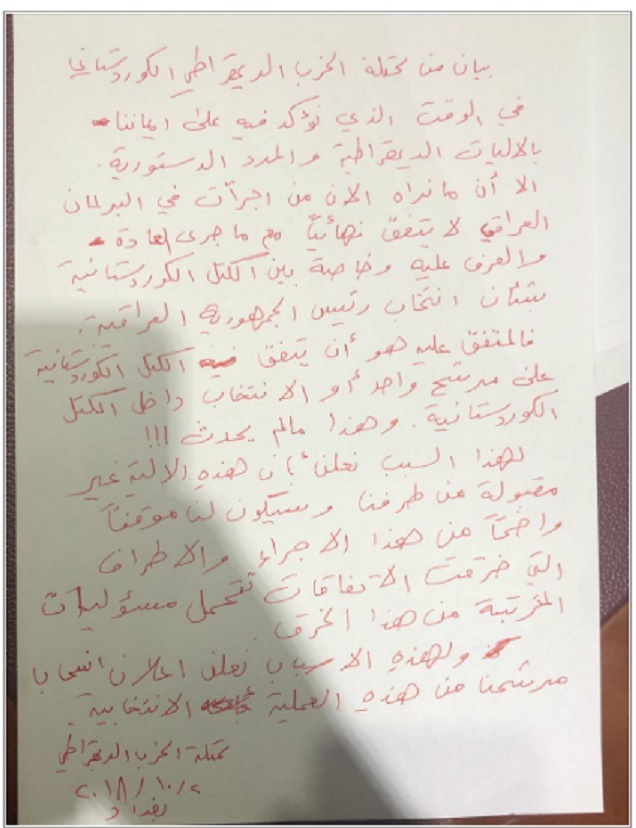 بيان من كتلة الحزب الديمقراطي الكوردستاني
في الوقت الذي نؤكد فيه على ايماننا
بالاليات الديمقراطية والمدد الدستورية.
الا أن مانراه الان من اجرأت في البرلمان
العراقي لا يتفق نهائياً مع ما جرى العادة
والعرف عليه وخاصة بين الكتل الكوردستانية
بشأن انتخاب رئيس الجمهورية العراقية.
فالمتفق عليه هو أن يتفق الكتل الكوردستانية
على مرشح واحد أو الانتخاب داخل الكتل
الكوردستانية. وهذا مالم يحدث !!!
لهذا السبب نعلن بأن هذه الالية غير
مقبولة من طرفنا وسيكون لنا موقفاً
واضحاً من هذا الاجراء والاطراف
التي خرقت الاتفاقات تتحمل مسؤوليات
المترتبة من هذا الخرق
ولهذه الاسباب نعلن اعلان انسحاب
مرشحنا من هذه العملية الانتخابية
كتلة الحزب الديمقراطي
٢٠١٨/١٠/٢
بغداد